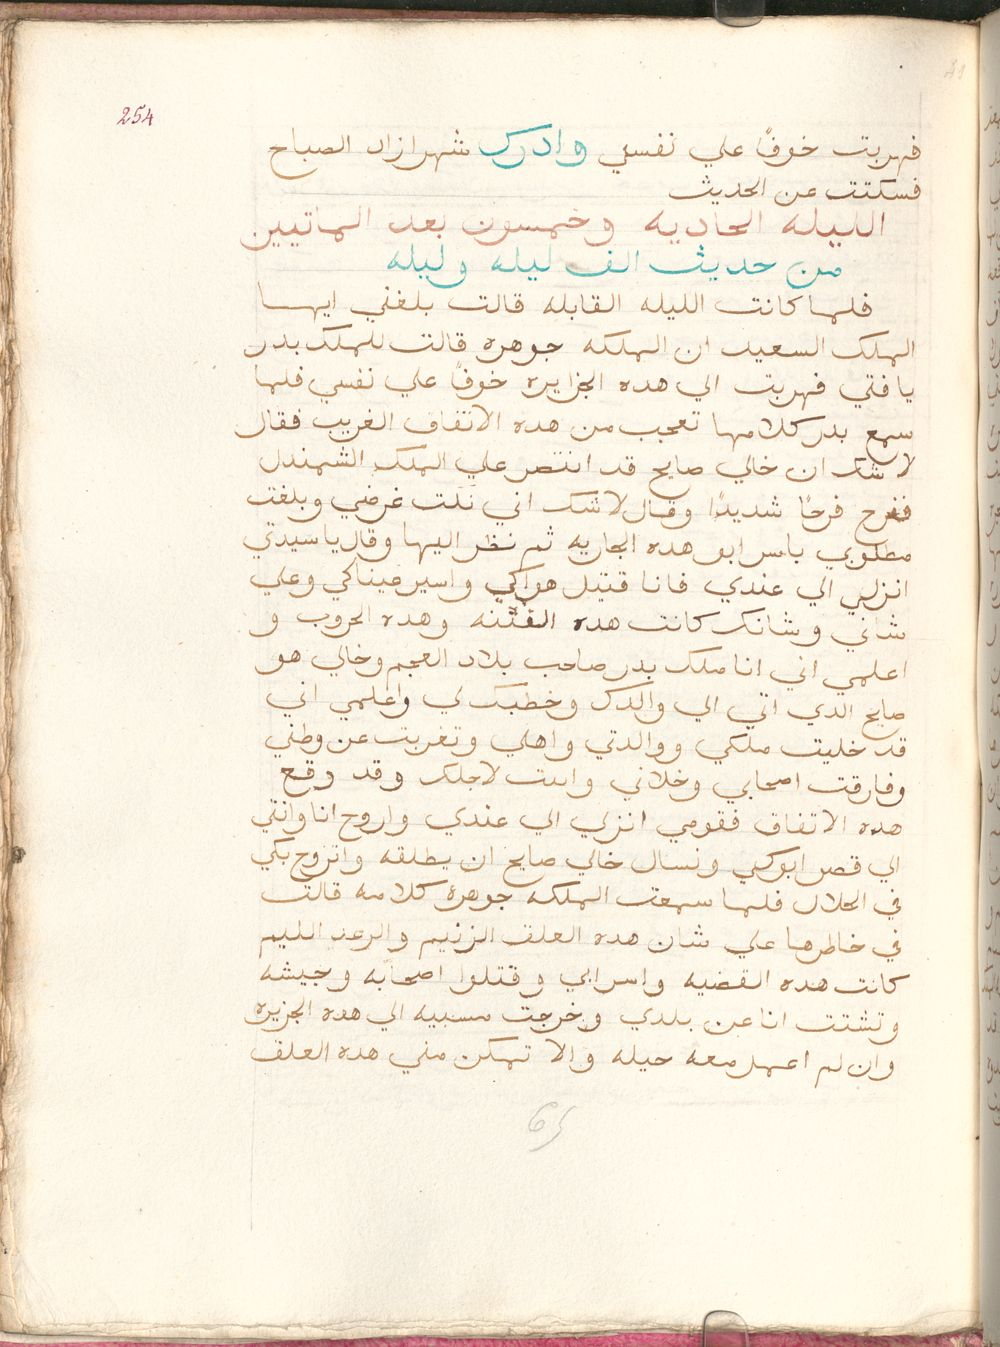 254
فهربت خوفًا علي نفسي وادرك شهرازاد الصباح
فسكتت عن الحديث
الليله الحاديه وخمسون بعد الماتيين
من حديث الف ليله وليله
فلما كانت الليله القابله قالت بلغني ايها
الملك السعيد ان الملكه جوهره قالت للملك بدر
يا فتي فهربت الي هده الجزايره خوفًا علي نفسي فلما
سمع بدر كلامها تعجب من هده الاتفاق الغريب فقال
لا شك ان خالي صايح قد انتصر علي الملك الشمندل
ففرح فرحًا شديدًا وقال لا شك اني نلت غرضي وبلغت
مطلوبي باسر ابو هده الجاريه ثم نظر اليها وقال يا سيدتي
انزلي الي عندي فانا قتيل هواكي واسير عيناكي وعلي
شاني وشانك كانت هده الفتنه وهده الحروب و
اعلمي اني انا ملك بدر صاحب بلاد العجم وخالي هو
صايح الدي اتي الي والدك وخطبك لي واعلمي اني
قد خليت ملكي ووالدتي واهلي وتعربت عن وطني
وفارقت اصحابي وخلاني واتيت لاجلك وقد وقع
هده الاتفاق فقومي انزلي الي عندي واروح انا وانتي
الي قصر ابوكي ونسال خالي صايح ان يطلقه واتزوج بكي
في الحلال فلما سمعت الملكه جوهره كلامه قالت
في خاطرها علي شان هده العلق الزنيم والرعد الليم
كانت هده القضيه واسر ابي وقتلوا اصحابه وجيشه
وتشتت انا عن بلدي وخرجت مسبيه الي هده الجزيره
وان لم اعمل معه حيله والا تمكن مني هده العلق